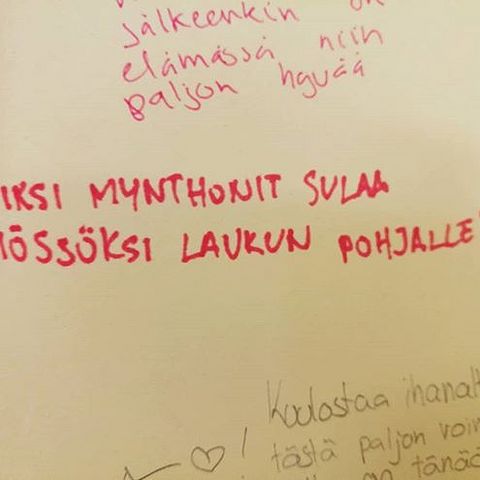 jälkeenkin on
elämässä niin
paljon hyvää
IKSI MYNTHONIT SULAA
ÖSSÖKSI LAUKUN POHJALLE
Kuulostaa ihanalt
! tästä paljon voim
on tänää